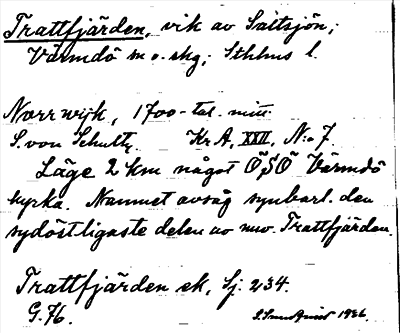 Trattfjärden, vik av Saltsjön;
Värmdö sn o. skg; Sthlms l.
Norrwijk, 1700-tal. mitt
S. von Schultz. Kr A, XXII, N:o 7.
Läge 2 km något ÖSÖ Värmdö
kyrka. Namnet avsåg synbarl. den
sydöstligaste delen av nuv. Trattfjärden.
Trattfjärden ek, Sj. 234.
G. 76. 1926.